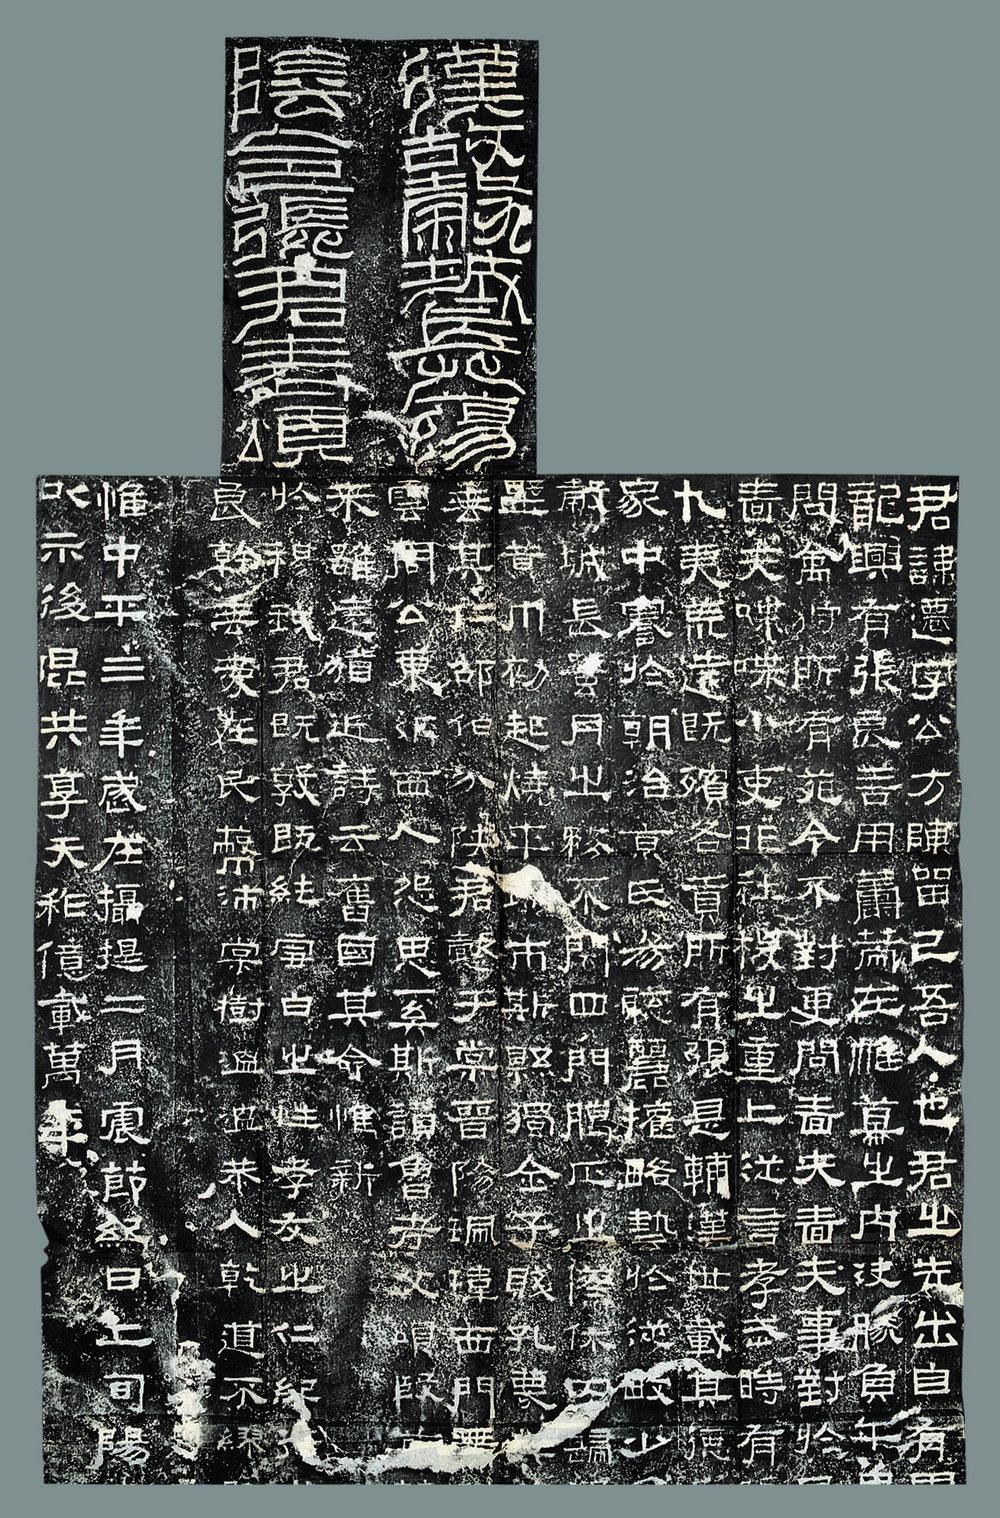 漢故穀城長蕩
陰令張君表頌
君諱遷字公方陳留己吾人也君之先出自有周
龍興有張良善用籌策在帷幕之內決勝負千
問禽狩所有苑令不對更問嗇夫嗇夫事對於
嗇夫喋喋小吏非社稷之重上從言孝武時有
九夷荒遠既殯各貢所有張是輔漢世載其德
家中謇於朝治京氏易聰麗權略藝於從畋少
穀城長蠶月之務不閉四門臘正之傺休囚歸
壄黃巾初起燒平城市斯縣獨全子賤孔蔑
善其仁邵伯分陝君懿于棠晉陽珮瑋西門帶
雲周公東征西人怨思奚斯讚魯考父頌殷前
來雖遠猶近詩云舊國其命惟新
於穆我君既敦既純雪白之性孝友之仁紀行
良幹垂愛在民蔽沛棠樹溫溫恭人乾道不繆
惟中平三年歲在攝提二月震節紀日上旬陽
以示後昆共享天祚億載萬年